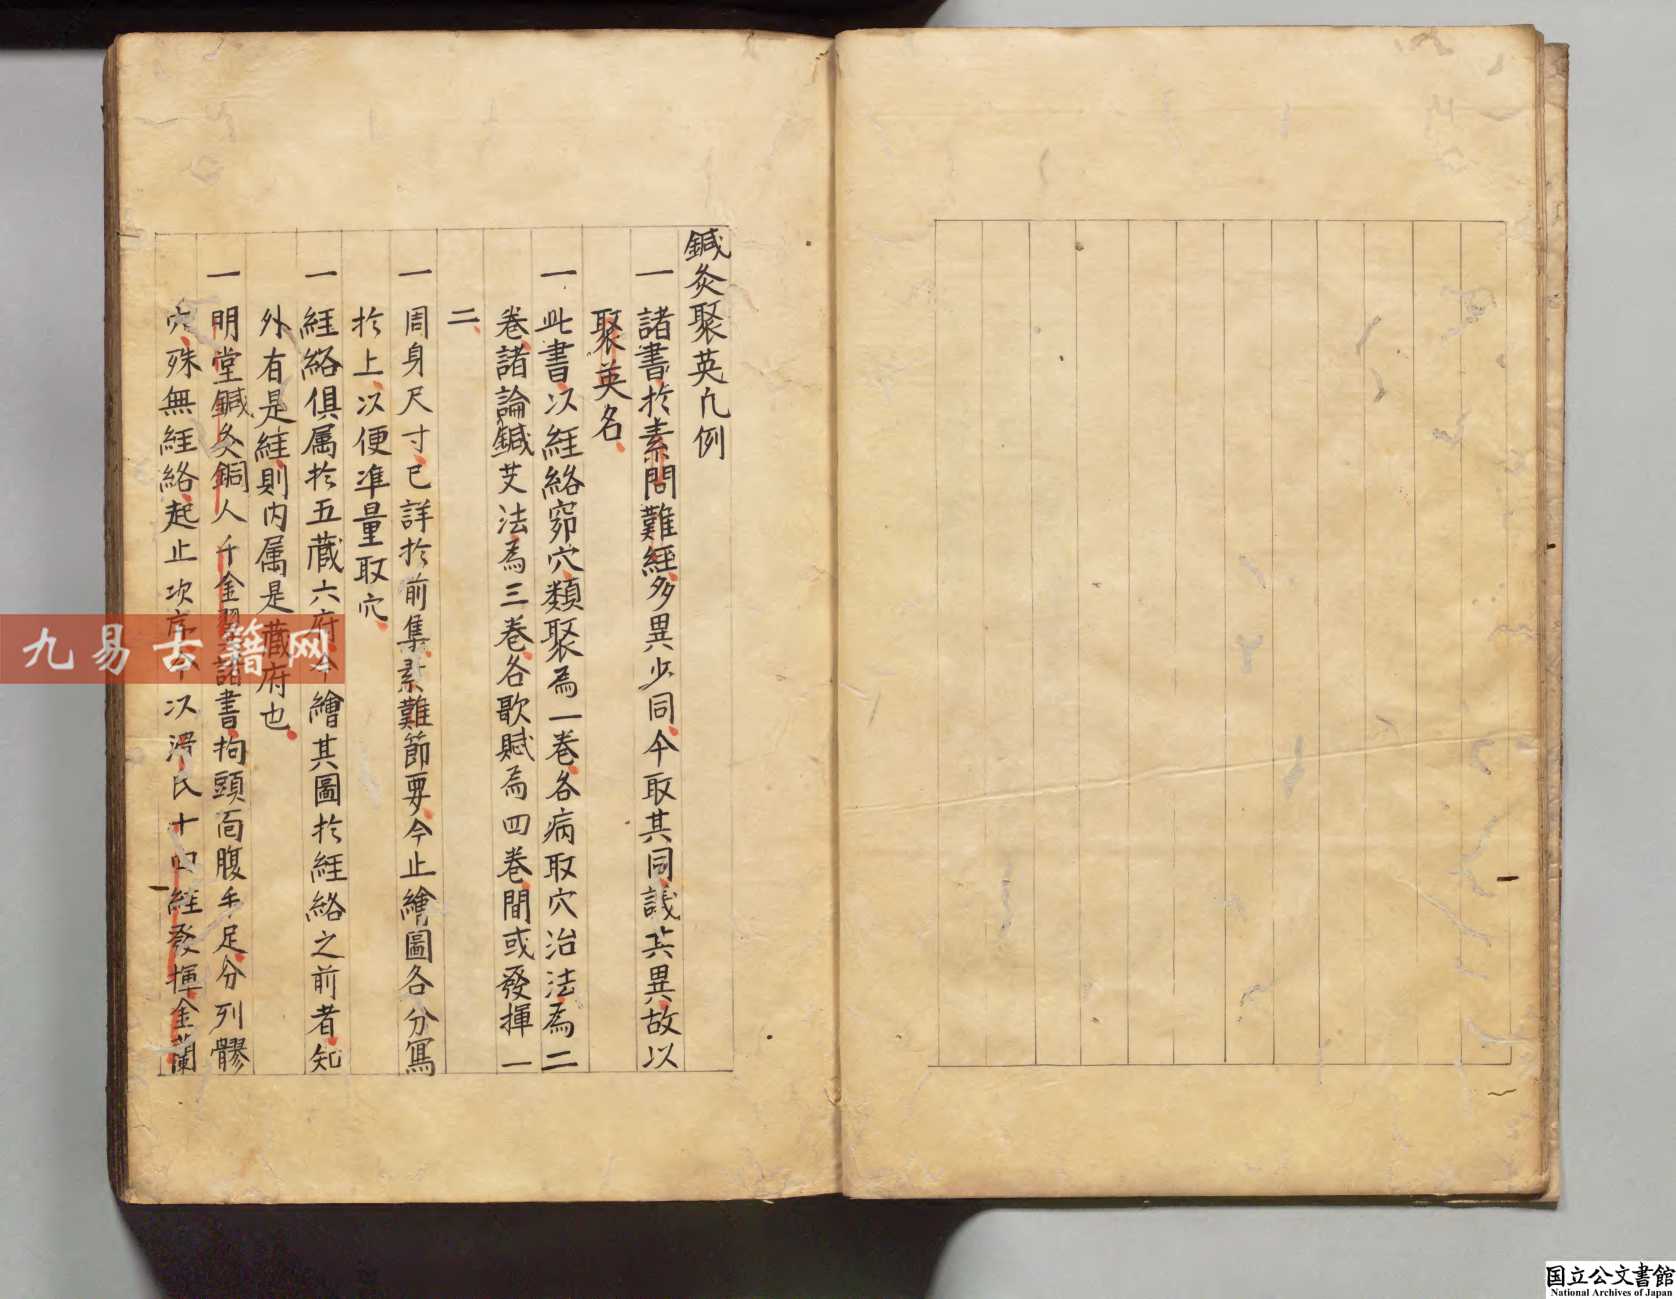 鍼灸聚英凡例
一 諸書於素問難經多異少同今取其同議其異故以
聚英名
一 此書以經絡窌穴類聚為一卷各病取穴治法為二
卷諸論鍼艾法為三卷各歌賦為四卷間或發揮一
二
一 周身尺寸已詳於前集素難節要今止繪圖各分寫
於上以便准量取穴
一 經絡俱属於五藏六府今繪其圖於經絡之前者知
外有是經則内属是藏府也
一 明堂鍼灸銅人千金翼諸書拘頭面腹手足分列髎
穴殊無經絡起止次序今以滑氏十四經發揮金蘭
九易古籍网
国立公文書館
National Archives of Japan